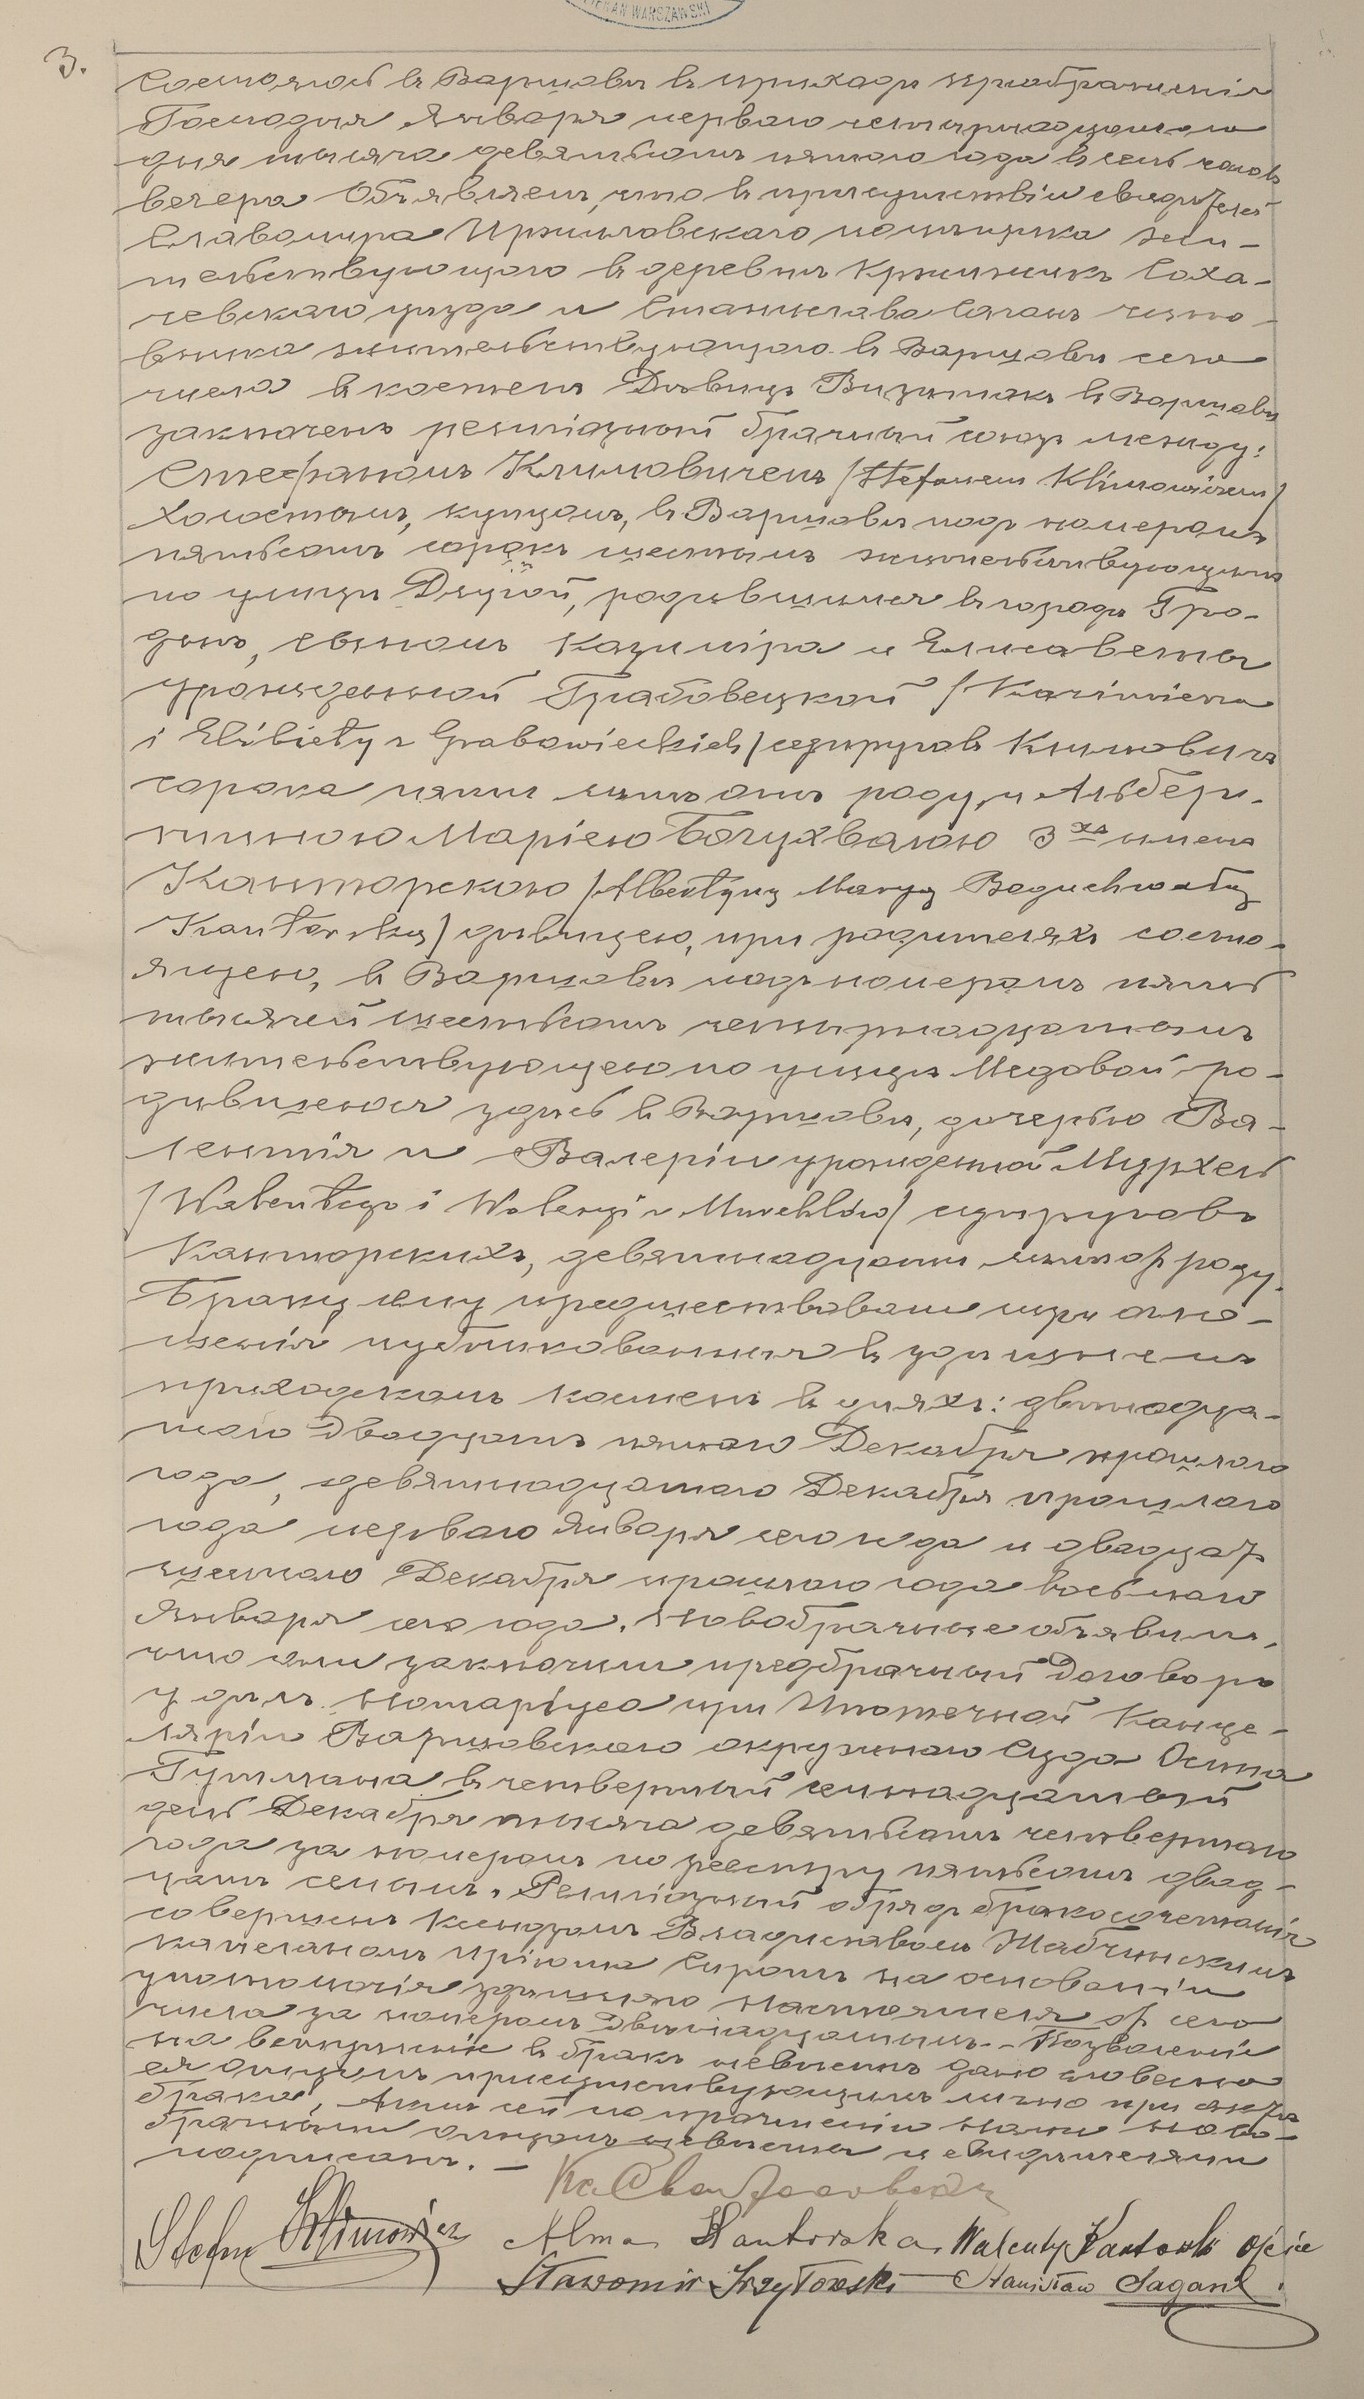 DZIEKAN WARSZAWSKI
3.
Состоялось въ Варшавѣ въ приходѣ преображенія
Господня Января перваго четырнадцатаго
дня тысяча девятьсотъ пятаго года въ семь часовъ
вечера Объявляемъ, что въ присутствіи свидѣтелей
Славомира Иржиловскаго помѣщика жи-
тельствующаго въ деревнѣ Соха-
чевскаго уѣзда и Станислава Саганъ чино-
вника жительствующаго въ Варшавѣ сего
числа въ костелѣ Дѣвицъ Визитокъ въ Варшавѣ
заключенъ религіозный брачный союзъ между:
Стефаномъ Климовичемъ /Stefanem Klimowiczem/
Холостымъ, купцомъ, въ Варшавѣ подъ номеромъ
пятьсотъ сорокъ шестымъ жительствующимъ
по улицѣ Длугой, родившимся въ городѣ Гро-
днѣ, сыномъ Казиміра и Елисаветы
урожденной Грабовецкой /Kazimierza
i Elżbiety z Grabowieckich/ супруговъ Климовичъ
сорока пяти лѣтъ отъ роду, и Альбер-
тиною Маріею Богухвалою 3хъ имена
Канторскою /Albertyną Maryą Boguchwałą
Kantorską/ дѣвицею, при родителяхъ состо-
ящею, въ Варшавѣ подъ номеромъ пять
тысячей шестьсотъ четырнадцатымъ
жительствующею по улицѣ Медовой, ро-
дившеюся здѣсь въ Варшавѣ, дочерью Ва-
лентія и Валеріи урожденной Мурхель
/Walentego i Waleryi z Murchlów/ супруговъ
Канторскихъ, девятнадцати лѣтъ отъ роду.
Браку сему предшествовали три огла-
шенія публикованныя въ здѣшнемъ
приходскомъ костелѣ въ дняхъ: двѣнадца-
таго двадцать пятаго Декабря прошлаго
года, девятнадцатаго Декабря прошлаго
года перваго Января сего года и двадцать
шестаго Декабря прошлаго года восьмаго
Января сего года. Новобрачные объявили,
что они заключили предбрачный Договоръ
у дѣлъ Нотаріуса при Ипотечной Канце-
ляріи Варшавскаго окружнаго Суда Осипа
Гутмана въ четвертый семнадцатый
день Декабря тысяча девятьсотъ четвертаго
года за номеромъ по реестру пятьсотъ двад-
цать семымъ. Религіозный обрядъ бракосочетанія
совершенъ Ксендзомъ Владиславомъ Жабчинскимъ
капеланомъ пріюта Сиротъ на основаніи
уполномочія здѣшняго Настоятеля отъ сего
числа за номеромъ двѣнадцатымъ. - Позволеніе
на вступленіе въ бракъ невѣстѣ дано словесно
ея отцомъ присутствующимъ лично при актѣ
брака. Актъ сей по прочтеніи Нами ново-
брачными отцомъ невѣсты и свидѣтелями
подписанъ. -
Stefan Klimowicz
Alma Kantorska Walenty Kantorski Ojciec
Sławomir Jrzyłowski Stanisław Sagan